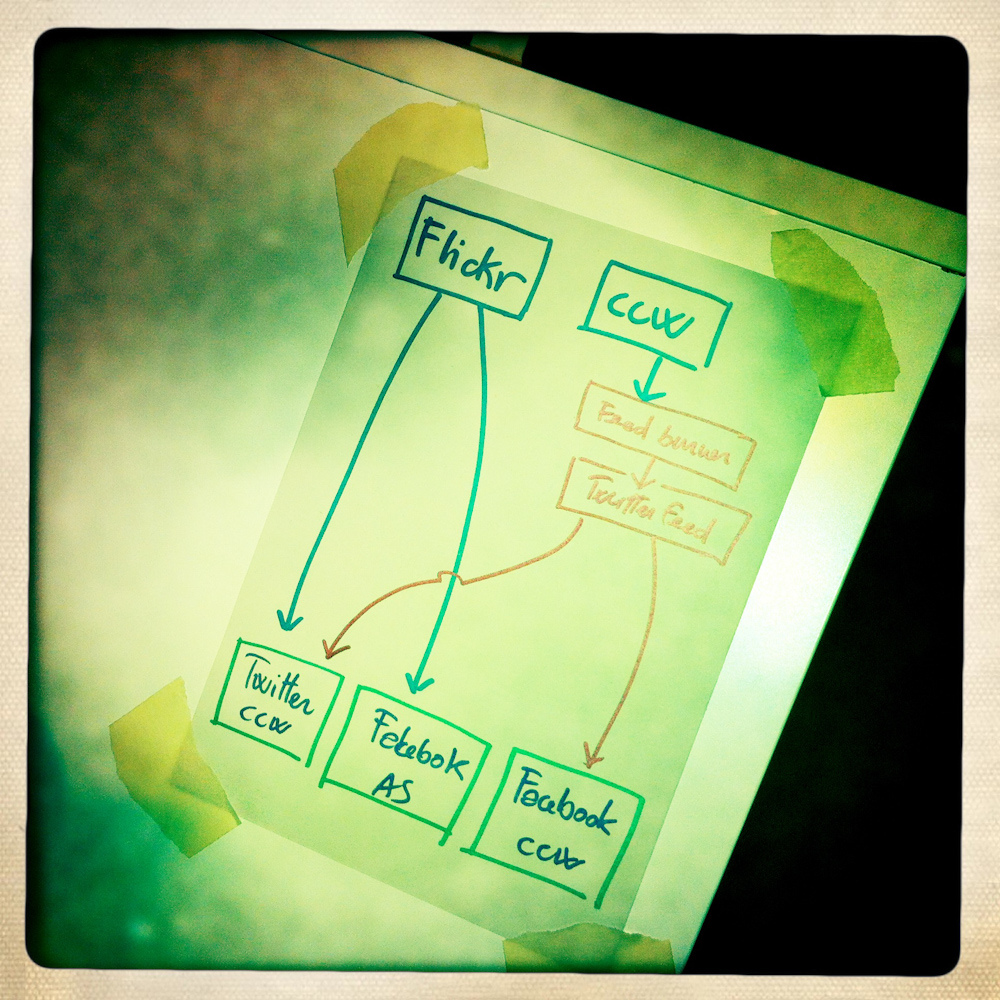 Flickr
ccw
Feed burner
Twitter Feed
Twitter
ccw
Facebook
AS
Facebook
ccw